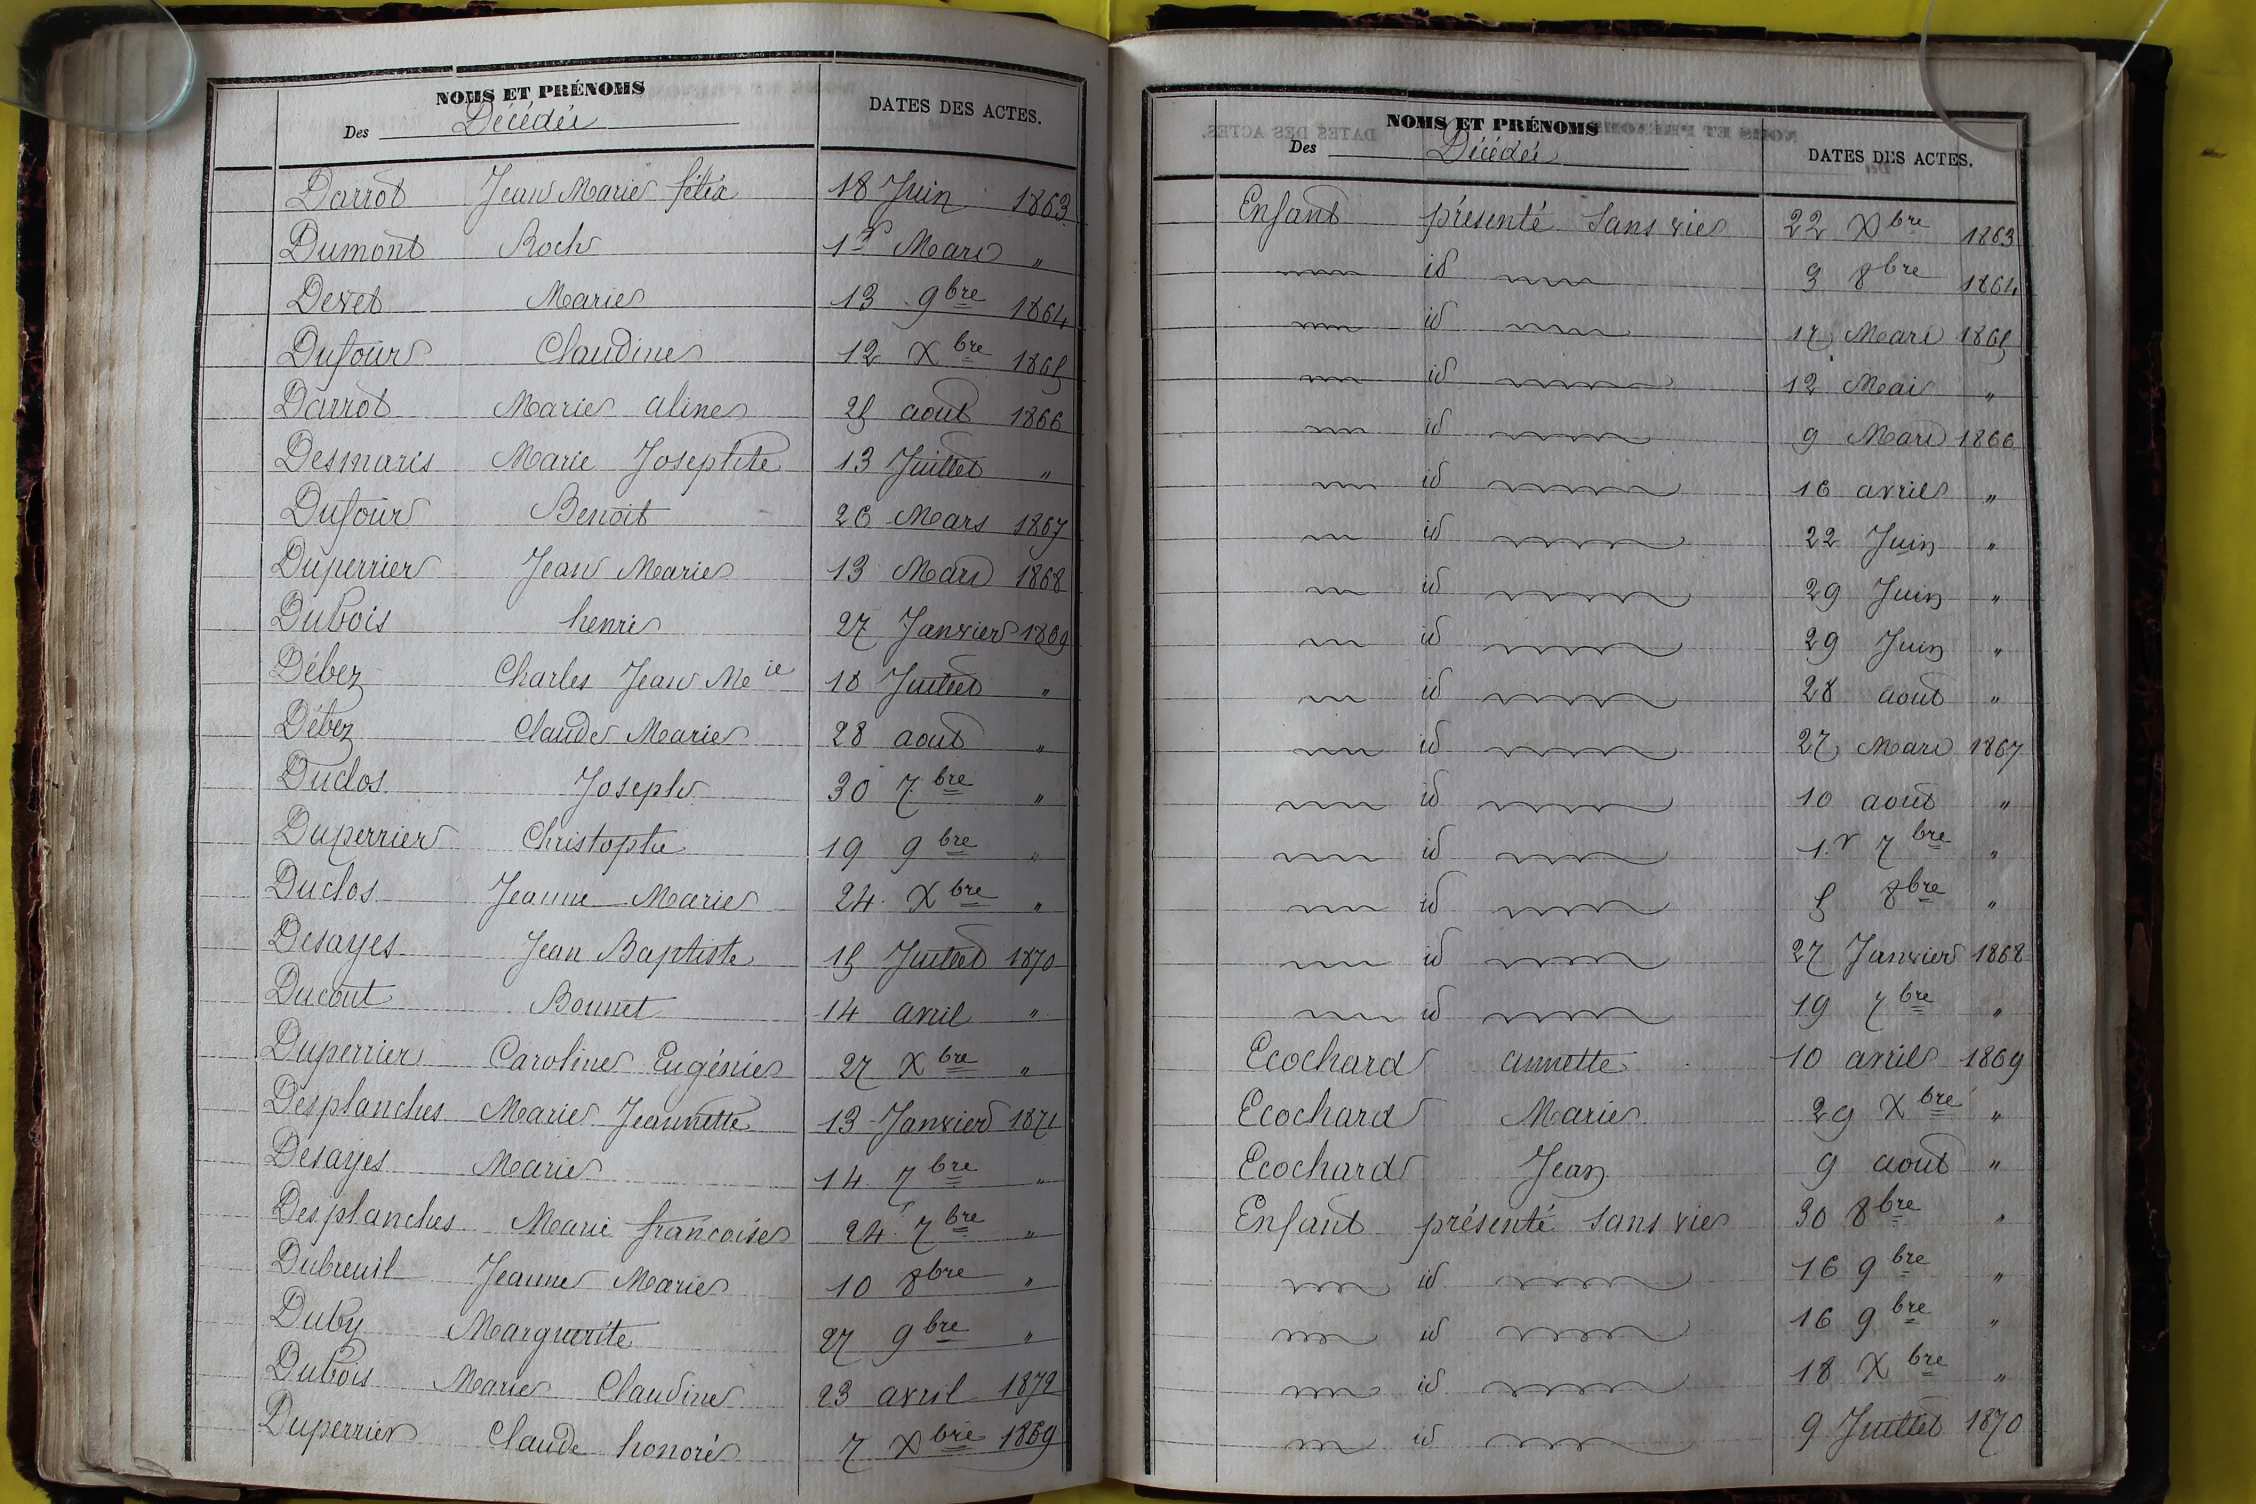 NOMS ET PRÉNOMS
Des Décédés
DATES DES ACTES.
Darrot Jean Marie félix 18 Juin 1863
Dumont Roch 1er Mars "
Devet Marie 13 9bre 1864
Dufour Claudine 12 Xbre 1865
Darrot Marie aline 25 aout 1866
Desmaris Marie Josephte 13 Juillet "
Dufour Benoit 26 Mars 1867
Duperrier Jean Marie 13 Mars 1868
Dubois henri 27 Janvier 1869
Débez Charles Jean Mie 18 Juillet "
Débez Claude Marie 28 aout "
Duclos Joseph 30 7bre "
Duperrier Christophe 19 9bre "
Duclos Jeanne Marie 24 Xbre "
Desayes Jean Baptiste 15 Juillet 1870
Ducout Bonnet 14 avril "
Duperrier Caroline Eugénie 27 Xbre "
Desplanches Marie Jeannette 13 Janvier 1871
Desayes Marie 14 7bre "
Desplanches Marie francoise 24 7bre "
Dubreuil Jeanne Marie 10 8bre "
Duby Marguerite 27 9bre "
Dubois Marie Claudine 23 avril 1872
Duperrier Claude honoré 7 Xbre 1869
NOMS ET PRÉNOMS
Des Décédés
DATES DES ACTES.
Enfant présenté sans vie 22 Xbre 1863
id 3 8bre 1864
id 17 Mars 1865
id 12 Mai "
id 9 Mars 1866
id 16 avril "
id 22 Juin "
id 29 Juin "
id 29 Juin "
id 28 aout "
id 27 Mars 1867
id 10 aout "
id 1.r 7bre "
id 5 8bre "
id 27 Janvier 1868
id 19 7bre "
Ecochard annette 10 avril 1869
Ecochard Marie 29 Xbre "
Ecochard Jean 9 aout "
Enfant présenté sans vie 30 8bre "
id 16 9bre "
id 16 9bre "
id 18 Xbre "
id 9 Juillet 1870